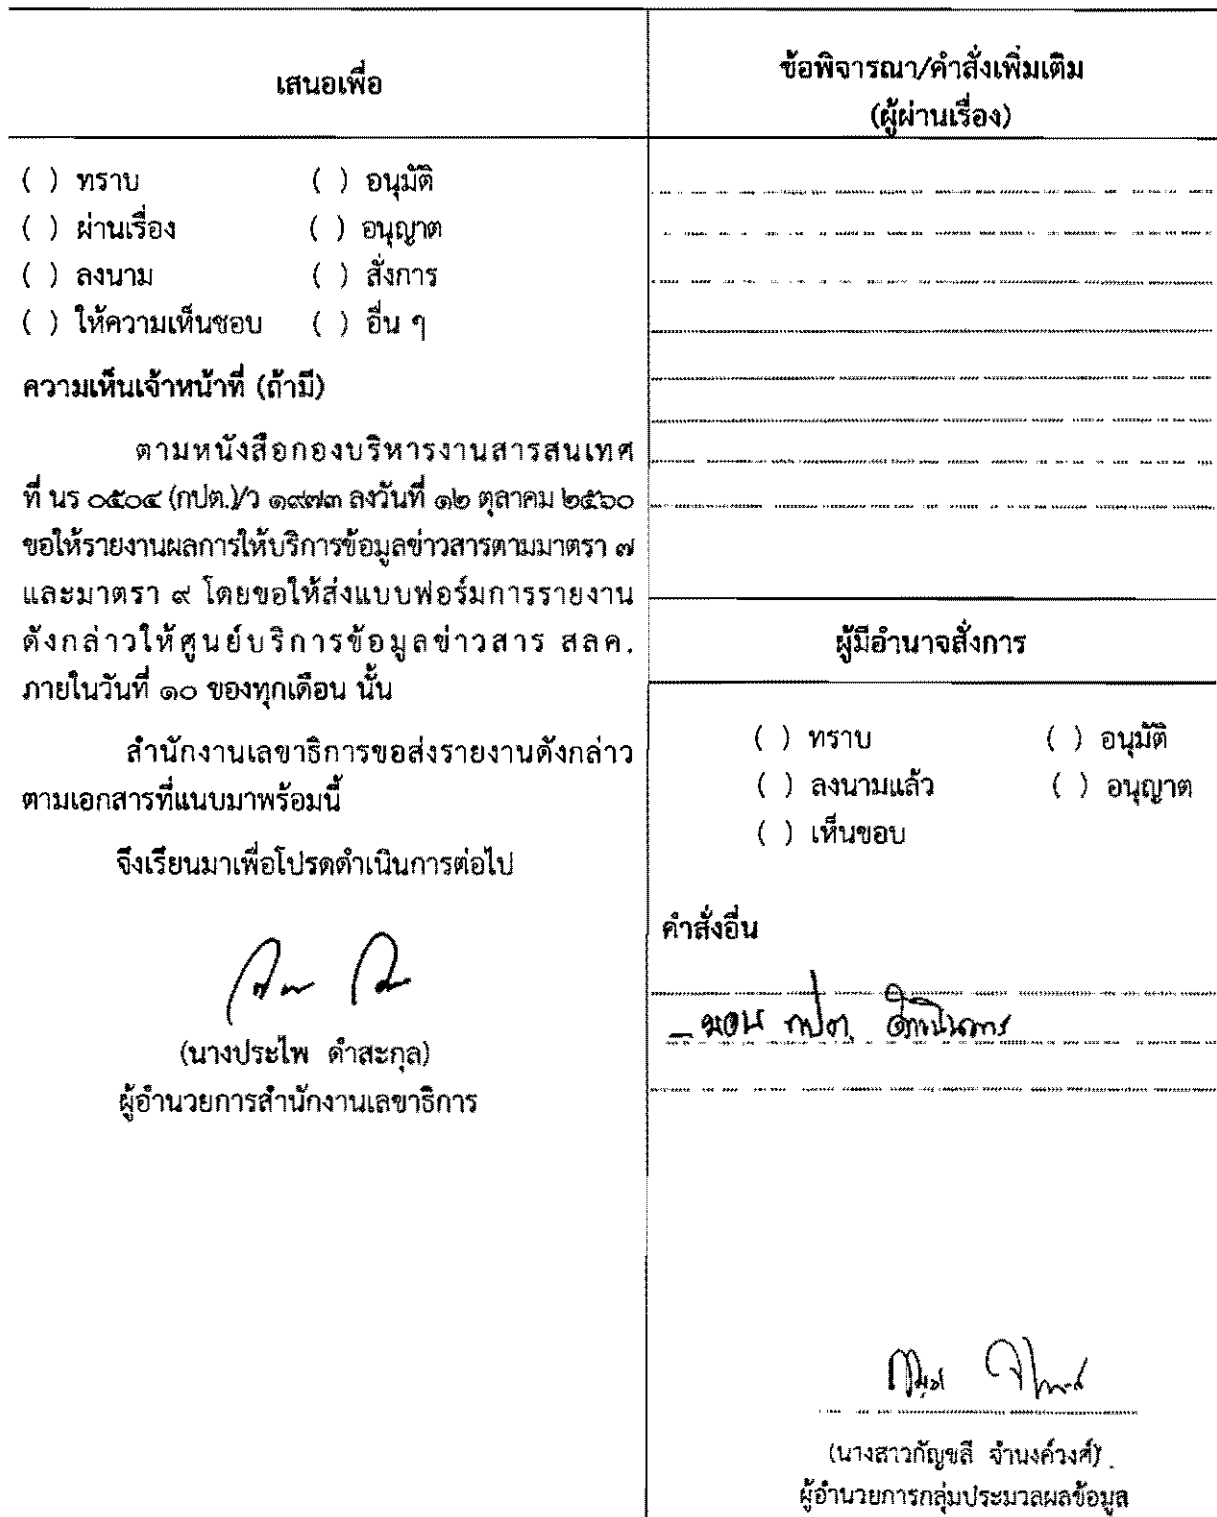 เสนอเพื่อ
( ) ทราบ ( ) อนุมัติ
( ) ผ่านเรื่อง ( ) อนุญาต
( ) ลงนาม ( ) สั่งการ
( ) ให้ความเห็นชอบ ( ) อื่น ๆ
ความเห็นเจ้าหน้าที่ (ถ้ามี)
ตามหนังสือกองบริหารงานสารสนเทศ
ที่ นร ๐๕๐๔ (กปต.)/ว ๑๙๗๓ ลงวันที่ ๑๒ ตุลาคม ๒๕๖๐
ขอให้รายงานผลการให้บริการข้อมูลข่าวสารตามมาตรา ๗
และมาตรา ๙ โดยขอให้ส่งแบบฟอร์มการรายงาน
ดังกล่าวให้ศูนย์บริการข้อมูลข่าวสาร สลค.
ภายในวันที่ ๑๐ ของทุกเดือน นั้น
สำนักงานเลขาธิการขอส่งรายงานดังกล่าว
ตามเอกสารที่แนบมาพร้อมนี้
จึงเรียนมาเพื่อโปรดดำเนินการต่อไป
(นางประไพ ดำสะกุล)
ผู้อำนวยการสำนักงานเลขาธิการ
ข้อพิจารณา/คำสั่งเพิ่มเติม
(ผู้ผ่านเรื่อง)
ผู้มีอำนาจสั่งการ
( ) ทราบ ( ) อนุมัติ
( ) ลงนามแล้ว ( ) อนุญาต
( ) เห็นชอบ
คำสั่งอื่น
- มอบ กปต. ดำเนินการ
(นางสาวกัญชลี จำนงค์วงศ์)
ผู้อำนวยการกลุ่มประมวลผลข้อมูล